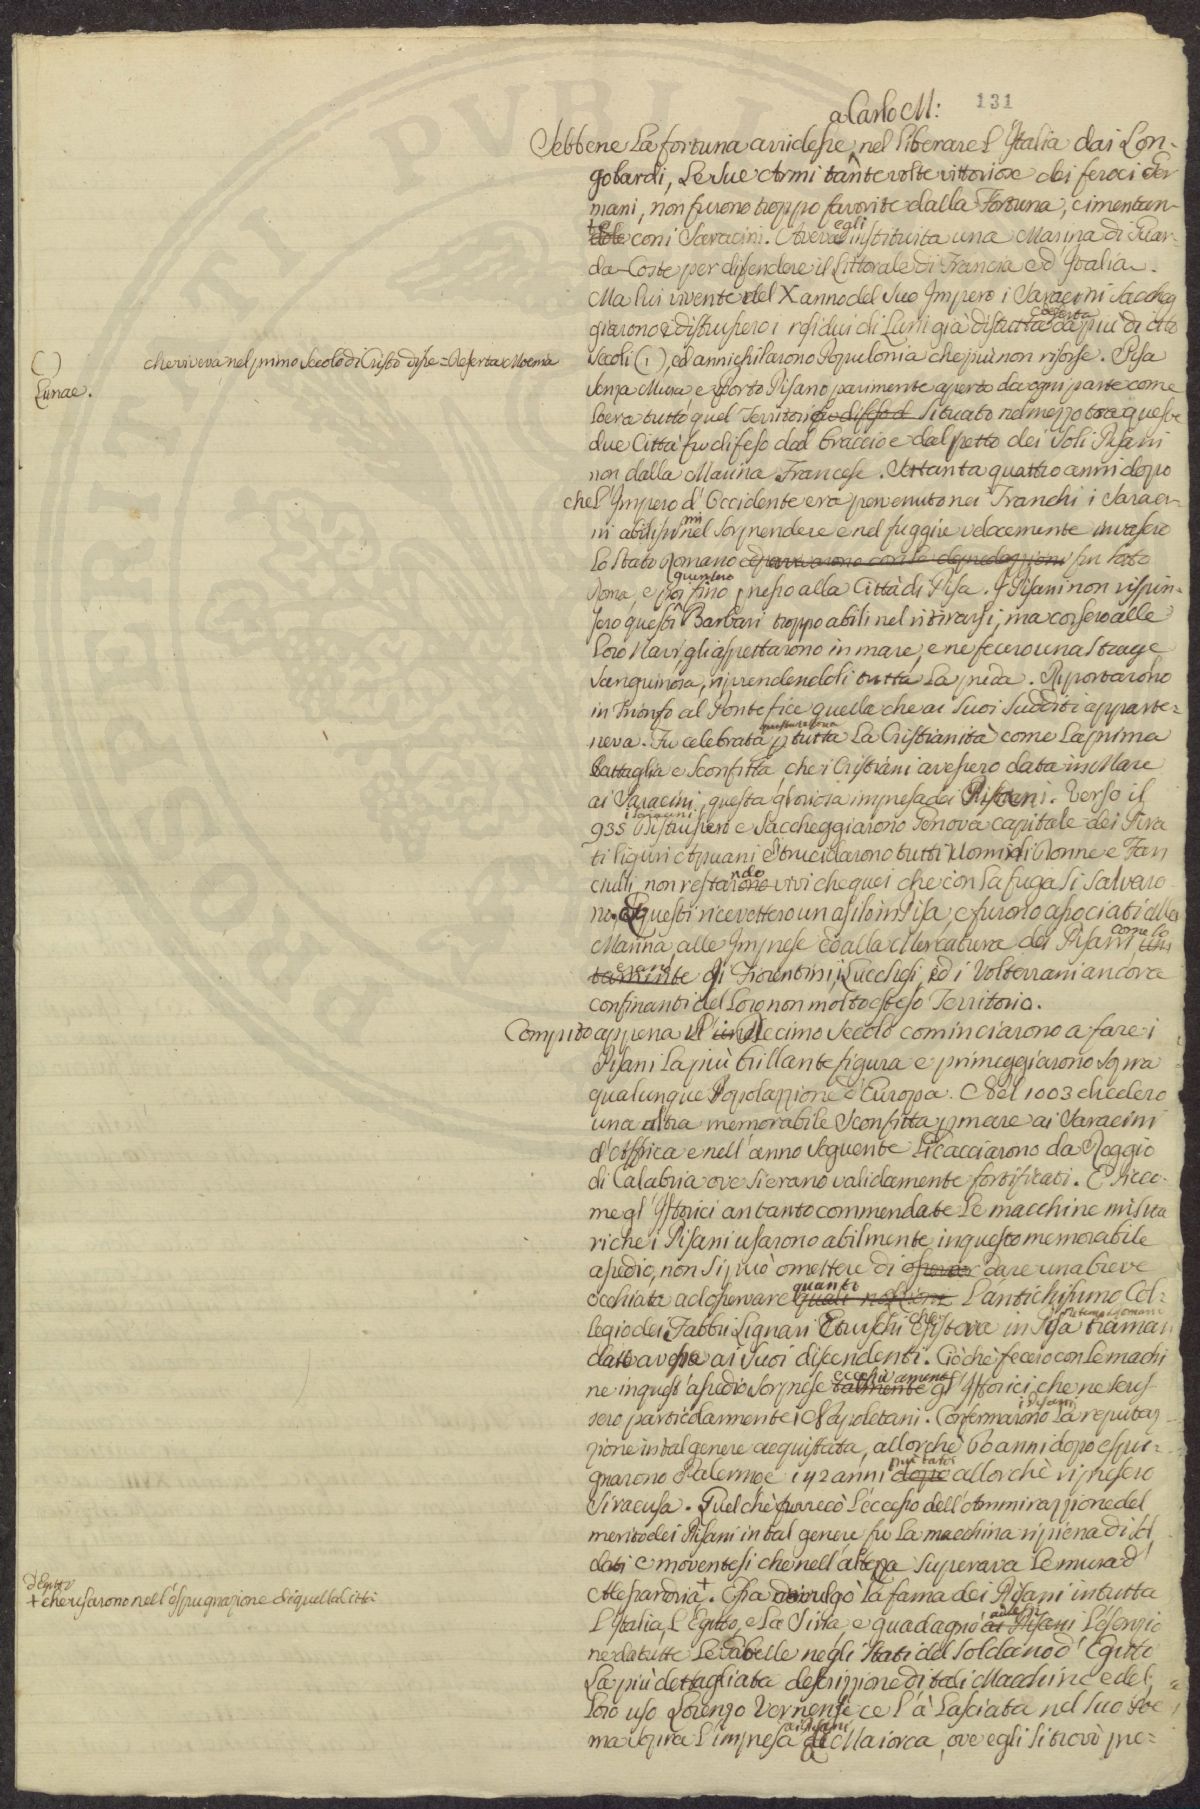 131
a Carlo M:
Sebbene La fortuna arridesse nel liberare l'Italia dai Lon-
gobardi, Le sue Armi tante volte vittoriose dei feroci Ger
mani, non furono troppo favorite dalla Fortuna, cimentan-
dole coni Saracini. Aveva egli instituita una Marina di Guar-
da-Coste per difendere il Littorale di Francia ed Italia.
Ma lui vivente nel X anno del suo Impero i Saracini saccheg
giarono e distrussero i residui di Luni già distrutta deserta da più di otto
secoli (1), ed annichilarono Populonia che più non risorse. Pisa
( )
Lunae.
che viveva nel primo Secolo di Cristo disse = Deserta Moenia
senza Mura e Porto Pisano parimente aperto da ogni parte come
lo era tutto quel Territorio difeso d situato nel mezzo tra queste
due Città fu difeso dal braccio e dal petto dei soli Pisani
non dalla Marina Francese. Settanta quattro anni dopo
che l'Impero d'Occidente era pervenuto nei Franchi i Sarac-
ni abilissimi nel sorprendere e nel fuggire velocemente invasero
Lo Stato Romano con le depredazioni fin sotto
Roma, e fino presso alla Città di Pisa. I Pisani non respin-
sero questi Barbari troppo abili nel ritirarsi, ma corsero alle
loro Navi, gli aspettarono in mare, e ne fecero una strage
sanguinosa, riprendendoli tutta La preda. Riportarono
in trionfo al Pontefice quella che ai suoi sudditi apparte=
neva. Fu celebrata p tutta La Cristianità come La prima
Battaglia e Sconfitta, che i Cristiani avessero data in Mare
ai Saracini, questa gloriosa impresa dei Pisani. Verso il
935 i Saracini Distrussero e Saccheggiarono Genova capitale dei Pira
ti liguri e trucidarono tutti Uomini Donne e Fan
ciulli, non restarono ndo vivi che quei che con La fuga si salvaro
no. Questi ricevettero un asilo in Pisa, e furono associati alla
Marina, alle Imprese ed alla Mercatura dei Pisani come lo
erano gli Fiorentini, i Lucchesi, ed i Volterrani ancora
confinanti del loro non molto esteso Territorio.
Compito appena l'undecimo secolo cominciarono a fare i
Pisani La più brillante figura e primeggiarono sopra
qualunque Popolazione d'Europa. Nel 1003 diedero
una altra memorabile Sconfitta p mare ai Saracini
d'Affrica e nell'anno seguente Li cacciarono da Reggio
di Calabria ove si erano validamente fortificati. E sicco-
me gl'Istorici an tanto commendate Le macchine milita
ri che i Pisani usarono abilmente in questo memorabile
assedio, non si può omettere di dare una breve
occhiata ad osservare quanto L'antichissimo Col=
legio dei Fabbri Lignari Etruschi che esisteva in Pisa traman
dato avesse ai suoi discendenti. Ciò che fecero con Le machi
ne in quest'assedio sorprese talmente gl'Istorici che ne scris-
sero particolarmente i Napoletani. Confermarono i Pisani La reputaz
zione in tal genere acquistata, allorchè 60 anni dopo espu-
gnarono Palermo e i 42 anni dopo più tardi allorchè ripresero
Siracusa. Quel che recò l'eccesso dell'Ammirazzione del
merito dei Pisani in tal genere fu La macchina ripiena di sol
dati e moventesi che nell'altezza superava Le mura d'
Alessandria +. Essa divulgò La fama dei Pisani in tutta
d'Egitto
+ che usarono nell'espugnazione di quella Città
L'Italia, L'Egitto, e La Siria, e guadagnò ad essi ai Pisani L'esenzio
ne da tutte Le Gabelle negli Stati del Soldano d'Egitto
La più dettagliata descrizzione di tali Macchine e del
loro uso Lorenzo Vernense ce L'à Lasciata nel suo Poe
ma sopra L'impresa dei Pisani di Maiorca, ove egli si trovò pre=